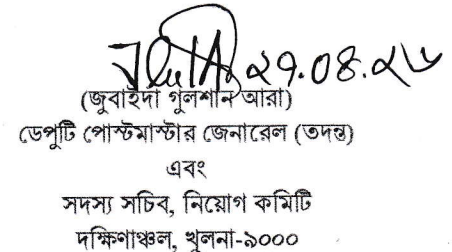 ২৭.০৪.২৬
(জুবাইদা গুলশান আরা)
ডেপুটি পোস্টমাস্টার জেনারেল (তদন্ত)
এবং
সদস্য সচিব, নিয়োগ কমিটি
দক্ষিণাঞ্চল, খুলনা-৯০০০